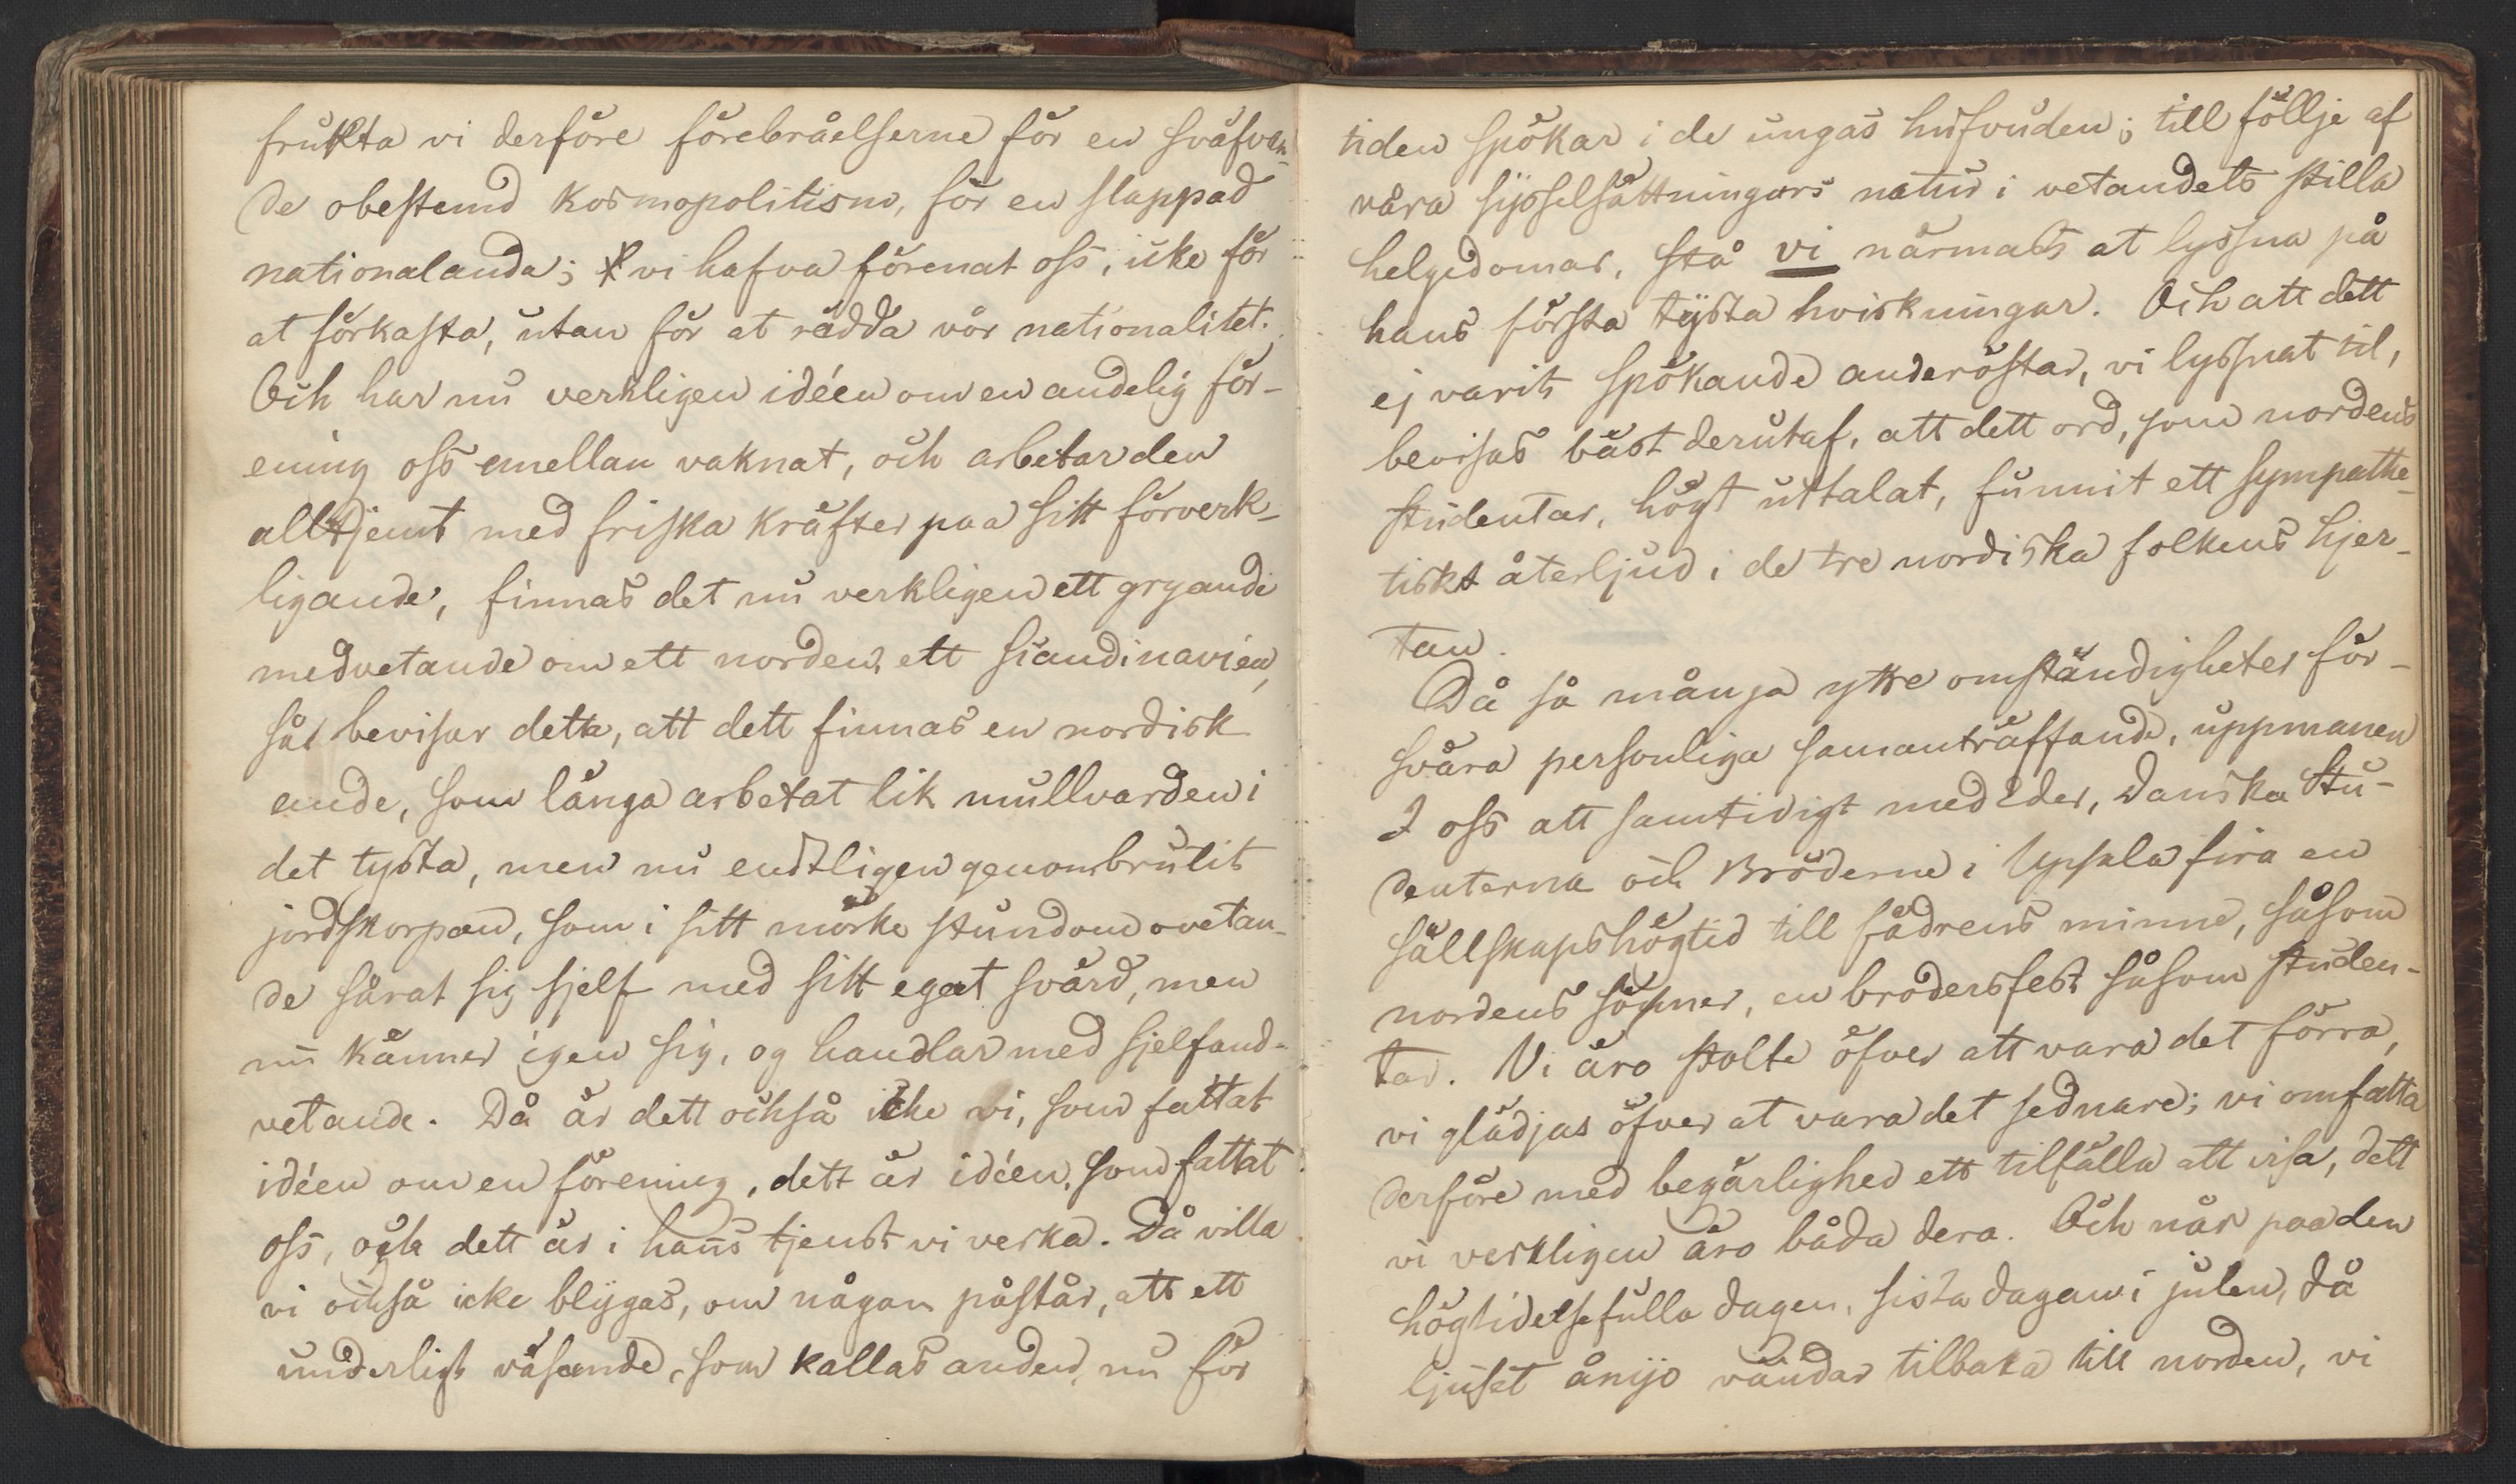 frukta vi derföre förebråelserne för en sväfven-
de obestemd kosmopolitism, för en slappad
nationalanda; vi hafva förenat oss, icke för
at förkasta, utan för at rädda vår nationalitet.
Och har nu verkligen idéen om en andelig för-
ening oss emellan vaknat, och arbetar den
alltjemt med friska kräfter paa sitt förverk-
ligande, finnas det nu verkligen ett gryande
medvetande om ett norden, ett Scandinavien,
så bevisar detta, att dett finnas en nordisk
ande, som länga arbetat lik mullvarden i
det tysta, men nu endtligen genombrutit
jordskorpan, som i sitt mörke stundom ovetan-
de sårat sig sjelf med sitt eget svärd, men
nu känner igen sig, og handlar med sjelfand-
vetande. Då är dett också icke vi, som fattat
idéen om en förening, dett är idéen, som fattat
oss, och dett är i hans tjenst vi verka. Då villa
vi också icke blygas, om någon påstår, att ett
underligt väsende, som kallas anden, nu för
tiden spökar i de ungas hufvuden; till föllje af
våra sysselsättningars natur i vetandets stilla
helgedomar, stå vi närmast at lyssna på
hans första tysta hviskningar. Och att dett
ej varit spökande anderöstar, vi lyssnat til,
bevisas bäst derutaf, att dett ord, som nordens
studentar, högt uttalat, funnit ett sympathe-
tiskt återljud i de tre nordiska folkens hjer-
tan.
Då så många yttre omständigheter för-
svåra personliga samanträffande, uppmanen
I oss att samtidigt med Eder, Danska Stu-
denterna och Bröderne i Upsala fira en
sällskapshögtid till fädrens minne, såsom
nordens söner, en brodersfest såsom studen-
tar. Vi äro stolte öfver att vara det förra,
vi glädjas öfver at vara det sednare; vi omfatta
derföre med begärlighed ett tilfälla att visa, dett
vi verkligen äro båda dera. Och når paa den
högtidelsefulla dagen, sista dagan i julen, då
ljuset ånyo vändar tilbaka till norden, vi